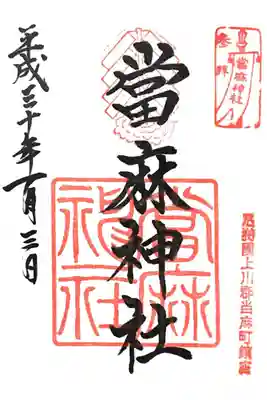 參拜
當麻神社
石狩國上川郡当麻町鎮座
當麻神社
當麻
神社
平成三十年一月三日